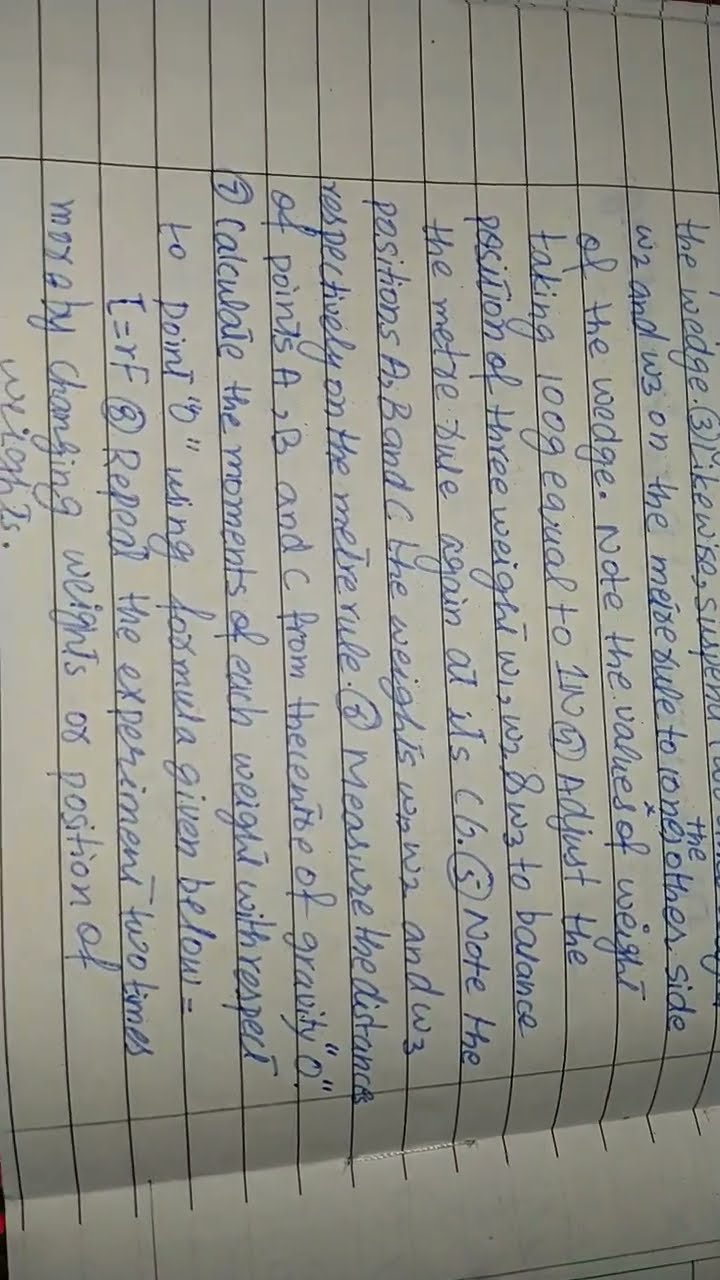 the wedge. (3) Likewise, suspend
w2 and w3 on the metre rule to the other side
of the wedge. Note the values of weight
taking 100g equal to 1N Adjust the
position of three weight w1, w2 & w3 to balance
the metre rule again at its C G. (5) Note the
positions A, B and C the weights w1, w2 and w3
respectively on the metre rule. Measure the distances
of points A, B and C from the centre of gravity "O".
(7) Calculate the moments of each weight with respect
to point "O" using formula given below =
τ = rF (8) Repeat the experiment two times
more by changing weights or position of
weights.